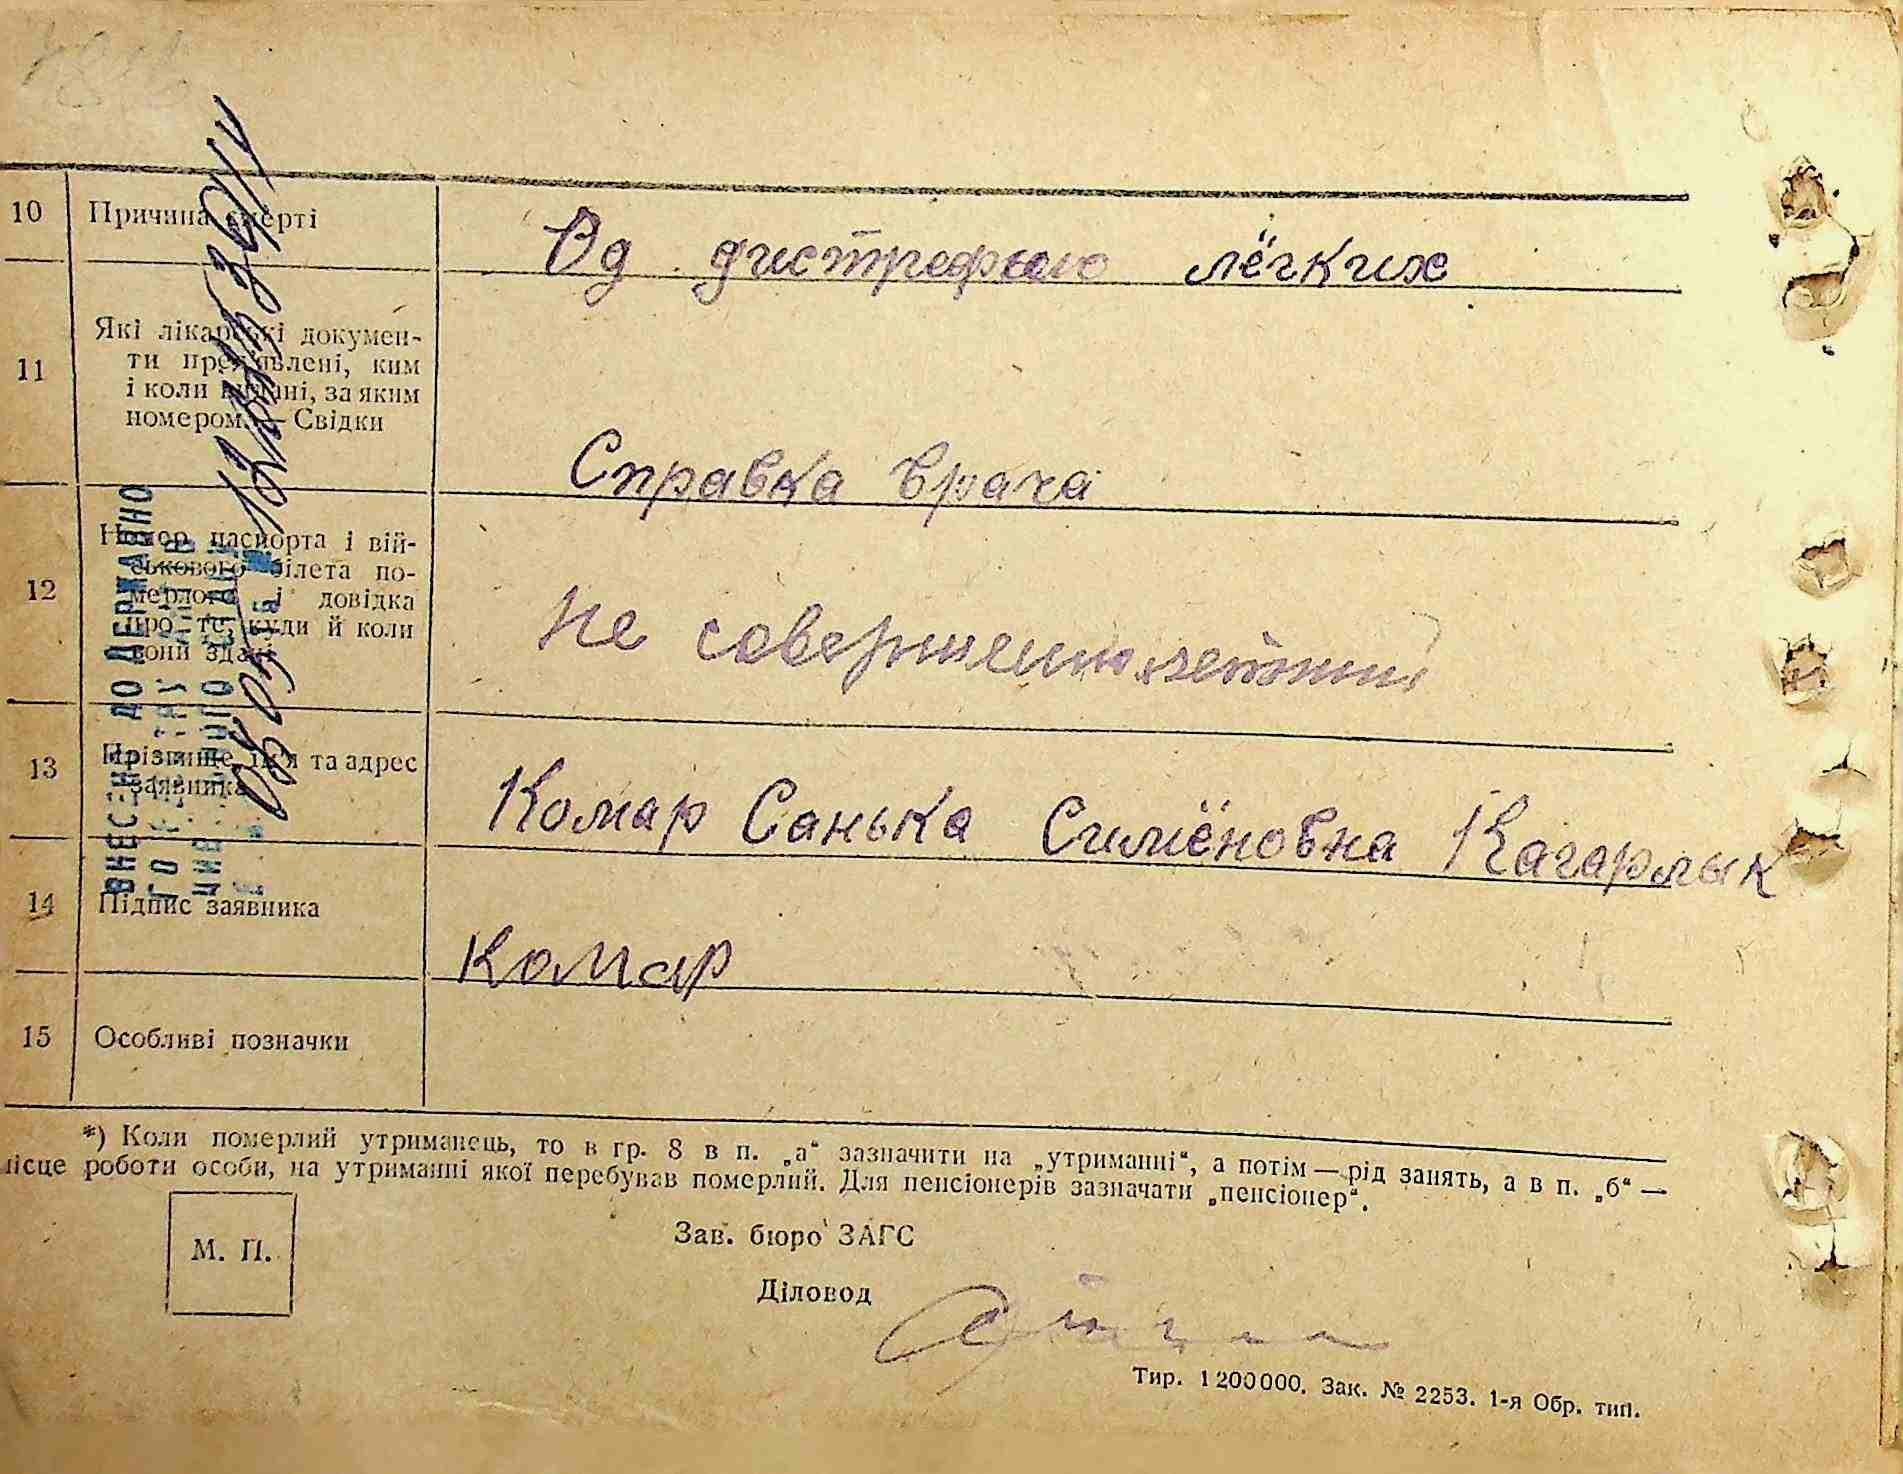 10 Причина смерті Од дистрефию лёгких
11 Які лікарські докумен-
ти пред'явлені, ким
і коли видані, за яким
номером.—Свідки
Справка врача
12 Номер паспорта і вій-
ськового білета по-
мерлого і довідка
про те, куди й коли
вони здані
не совершеннолетний
13 Прізвище, ім'я та адрес
заявника
Комар Санька Симёновна Кагарлык
14 Підпис заявника
Комар
15 Особливі позначки
*) Коли померлий утриманець, то в гр. 8 в п. „а“ зазначити на „утриманні“, а потім—рід занять, а в п. „б“ —
місце роботи особи, на утриманні якої перебував померлий. Для пенсіонерів зазначати „пенсіонер“.
М. П.
Зав. бюро ЗАГС
Діловод
Тир. 1200000. Зак. № 2253. 1-я Обр. тип.
ВНЕСЕНО ДО ДЕРЖАВНО